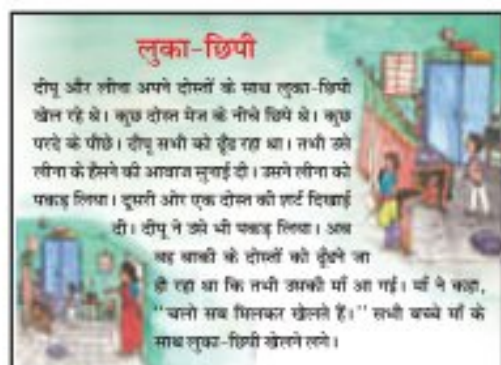 लुका-छिपी
दीपू और लीना अपने दोस्तों के साथ लुका-छिपी
खेल रहे थे। कुछ दोस्त मेज के नीचे छिपे थे। कुछ
परदे के पीछे। दीपू सभी को ढूँढ रहा था। तभी उसे
लीना के हँसने की आवाज सुनाई दी। उसने लीना को
पकड़ लिया। दूसरी ओर एक दोस्त की शर्ट दिखाई
दी। दीपू ने उसे भी पकड़ लिया। अब
वह बाकी के दोस्तों को ढूँढने जा
ही रहा था कि तभी उसकी माँ आ गई। माँ ने कहा,
"चलो सब मिलकर खेलते हैं।" सभी बच्चे माँ के
साथ लुका-छिपी खेलने लगे।